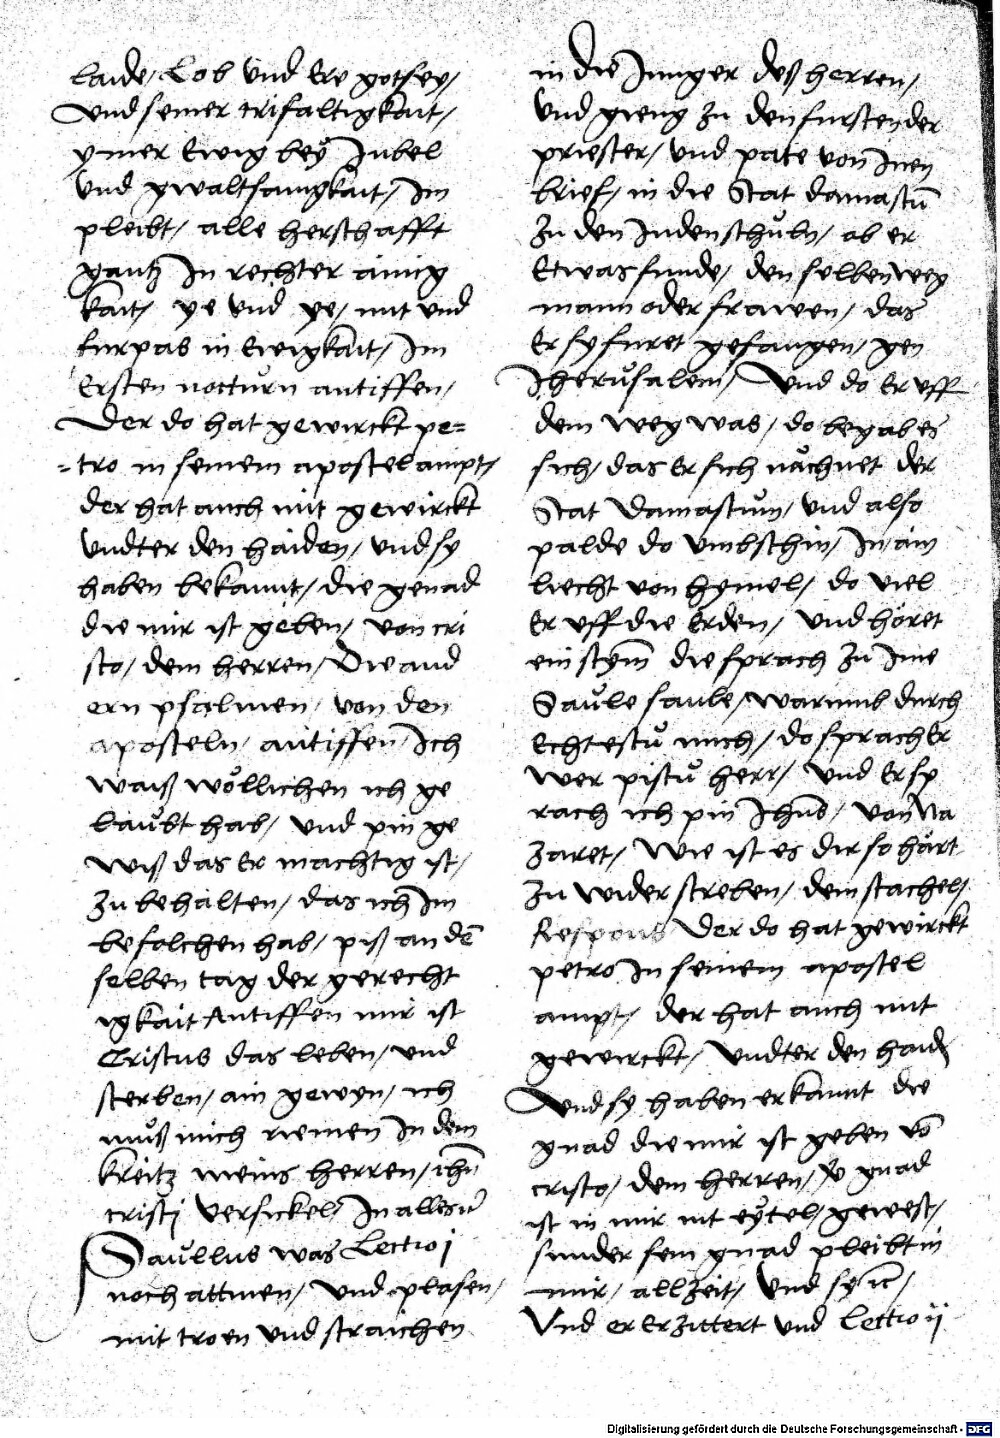 laide, Lob vnd Ere gotsey,
vnd seiner trifaltigkait,
ymer Ewig beÿ Jubel
vnd gwaltsamgkait, Im
pleibt, alle herschafft
gantz In rechter ainig
kait, ye vnd ye, mit vnd
furpas in Ewigkait, Im
Ersten nocturn antiffen,
Der do hat gewirckt pe=
=tro in seinem apostelampt,
der hat auch mit gewirckt
vndter den haiden, vnd sy
haben bekannt, die genad
die mir ist geben, von cri
sto, dem herren, Die and
ern psalmen, von den
aposteln, antiffen, Ich
waiß wöllichen ich ge
laubt hab, vnd pin ge
wiß das Er machtig ist,
zu behalten, das ich Im
befolchen hab, piß an dē
selben tag der gerecht
igkait Antiffen mir ist
Cristus das leben, vnd
sterben, ain gewyn, ich
muß mich riemen In dem
kreitz meins herren, ihū
cristj versickel, In alles
Saullus was Lectio j
noch attmen, vnd plasen,
mit troen vnd straichen
in die Junger deß herren,
vnd gieng zu den fursten der
priester, vnd pate von Inen
brief, in die Stat damascū
zu den Juden schuln, ob er
Etwas funde, den selben weg
mann oder frawen, das
Er sy furet gefangen, gen
Jherusalem, vnd do Er vff
dem weg was, do begab es
sich, das Er sich nachnet der
Stat Damascum, vnd also
palde do vmbschin, In, ain
liecht von hymel, do viel
Er vff die Erden, vnd höret
ein stym die sprach zu Ime
Saule saule, warumb durch
Echtestu mich, do sprach Er
wer pistu herr, vnd Er sp
rach ich pin Jhus, von Na
zaret, wie ist es dir so hart
zu wider streben, dem stachel,
Respons Der do hat gewirckt
petro In seinem apostel
ampt, der hat auch mit
gewirckt, vndter den haidē
vnd sy haben erkannt die
gnad die mir ist geben vō
cristo, dem herren, gnad
ist in mir nit eytel, gewest,
sunder sein gnad pleibt in
mir, allzeit, vnd sy
Vnd er Erzittert vnd Lectio ij
Digitalisierung gefördert durch die Deutsche Forschungsgemeinschaft - DFG